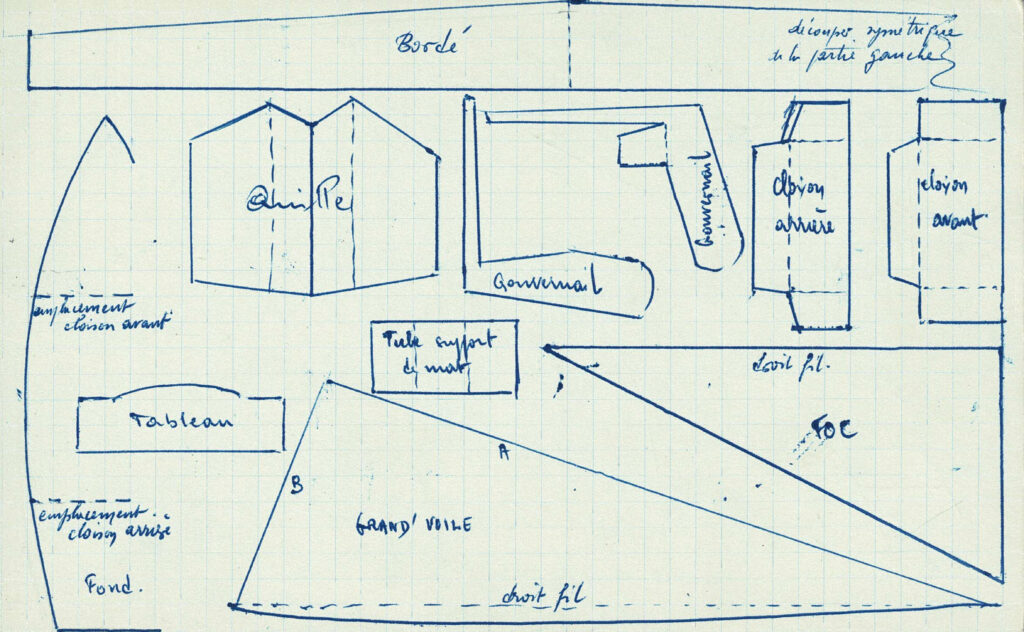 Bordé
découper symétrique
de la partie gauche
Quille
Gouvernail
Gouvernail
cloison
arrière
cloison
avant.
emplacement
cloison avant
Tube support
de mat
droit fil.
FOC
Tableau
A
B
GRAND' VOILE
emplacement
cloison arrière
Fond.
droit fil